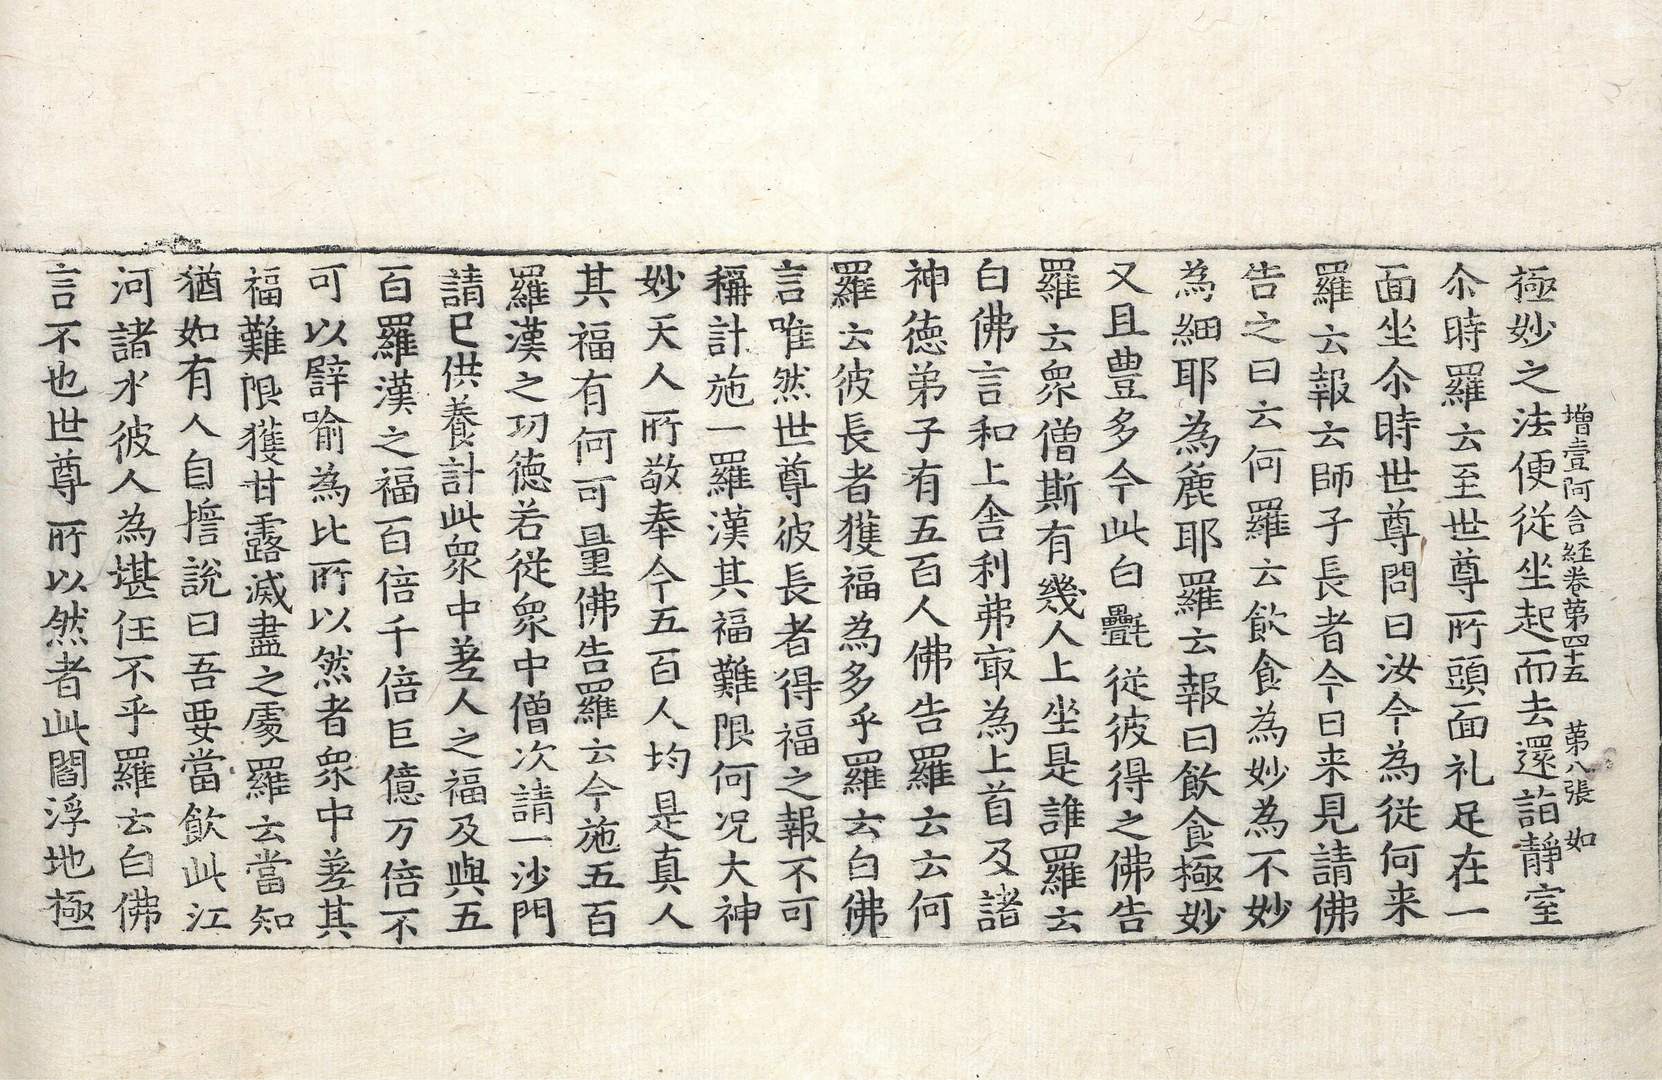 增壹阿含經卷第四十五　第八張　如
極妙之法便從坐起而去還詣靜室
尒時羅云至世尊所頭面礼足在一
面坐尒時世尊問曰汝今為從何来
羅云報云師子長者今日来見請佛
告之曰云何羅云飲食為妙為不妙
為細耶為麁耶羅云報曰飲食極妙
又且豊多今此白㲲從彼得之佛告
羅云衆僧斯有幾人上坐是誰羅云
白佛言和上舎利弗㝡為上首及諸
神德弟子有五百人佛告羅云云何
羅云彼長者獲福為多乎羅云白佛
言唯然世尊彼長者得福之報不可
稱計施一羅漢其福難限何况大神
妙天人所敬奉今五百人均是真人
其福有何可量佛告羅云今施五百
羅漢之功德若從衆中僧次請一沙門
請已供養計此衆中善人之福及與五
百羅漢之福百倍千倍巨億万倍不
可以譬喻為比所以然者衆中善其
福難限獲甘露滅盡之處羅云當知
猶如有人自誓說曰吾要當飲此江
河諸水彼人為堪任不乎羅云白佛
言不也世尊所以然者此閻浮地極